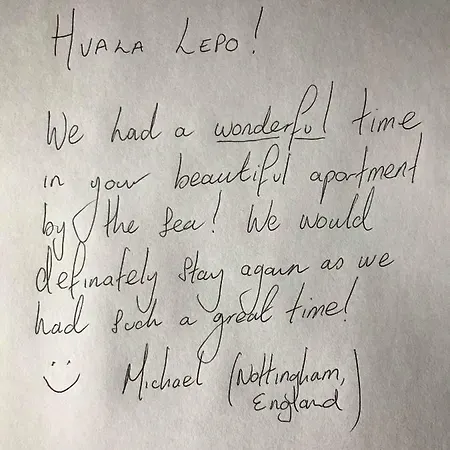 HVALA LEPO!
We had a wonderful time
in your beautiful apartment
by the sea! We would
definately stay again as we
had such a great time!
:) Michael (Nottingham,
England)